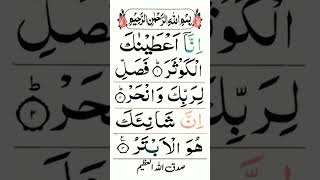 بِسْمِ اللهِ الرَّحْمٰنِ الرَّحِيْمِ
اِنَّاۤ اَعْطَيْنٰكَ
الْكَوْثَرَؕ۝۱ فَصَلِّ
لِرَبِّكَ وَانْحَرْؕ۝۲
اِنَّ شَانِئَكَ
هُوَ الْاَبْتَرُ۝۳
صدق الله العظيم